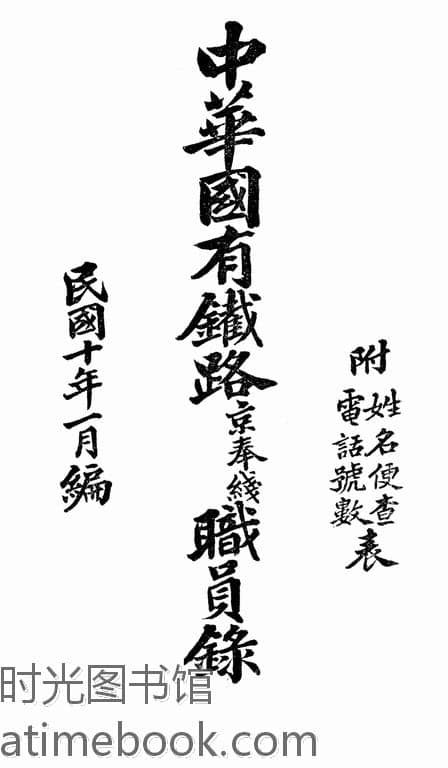 附姓名便查電話號數表
中華國有鐵路京奉綫職員錄
民國十年一月編
时光图书馆
atimebook.com